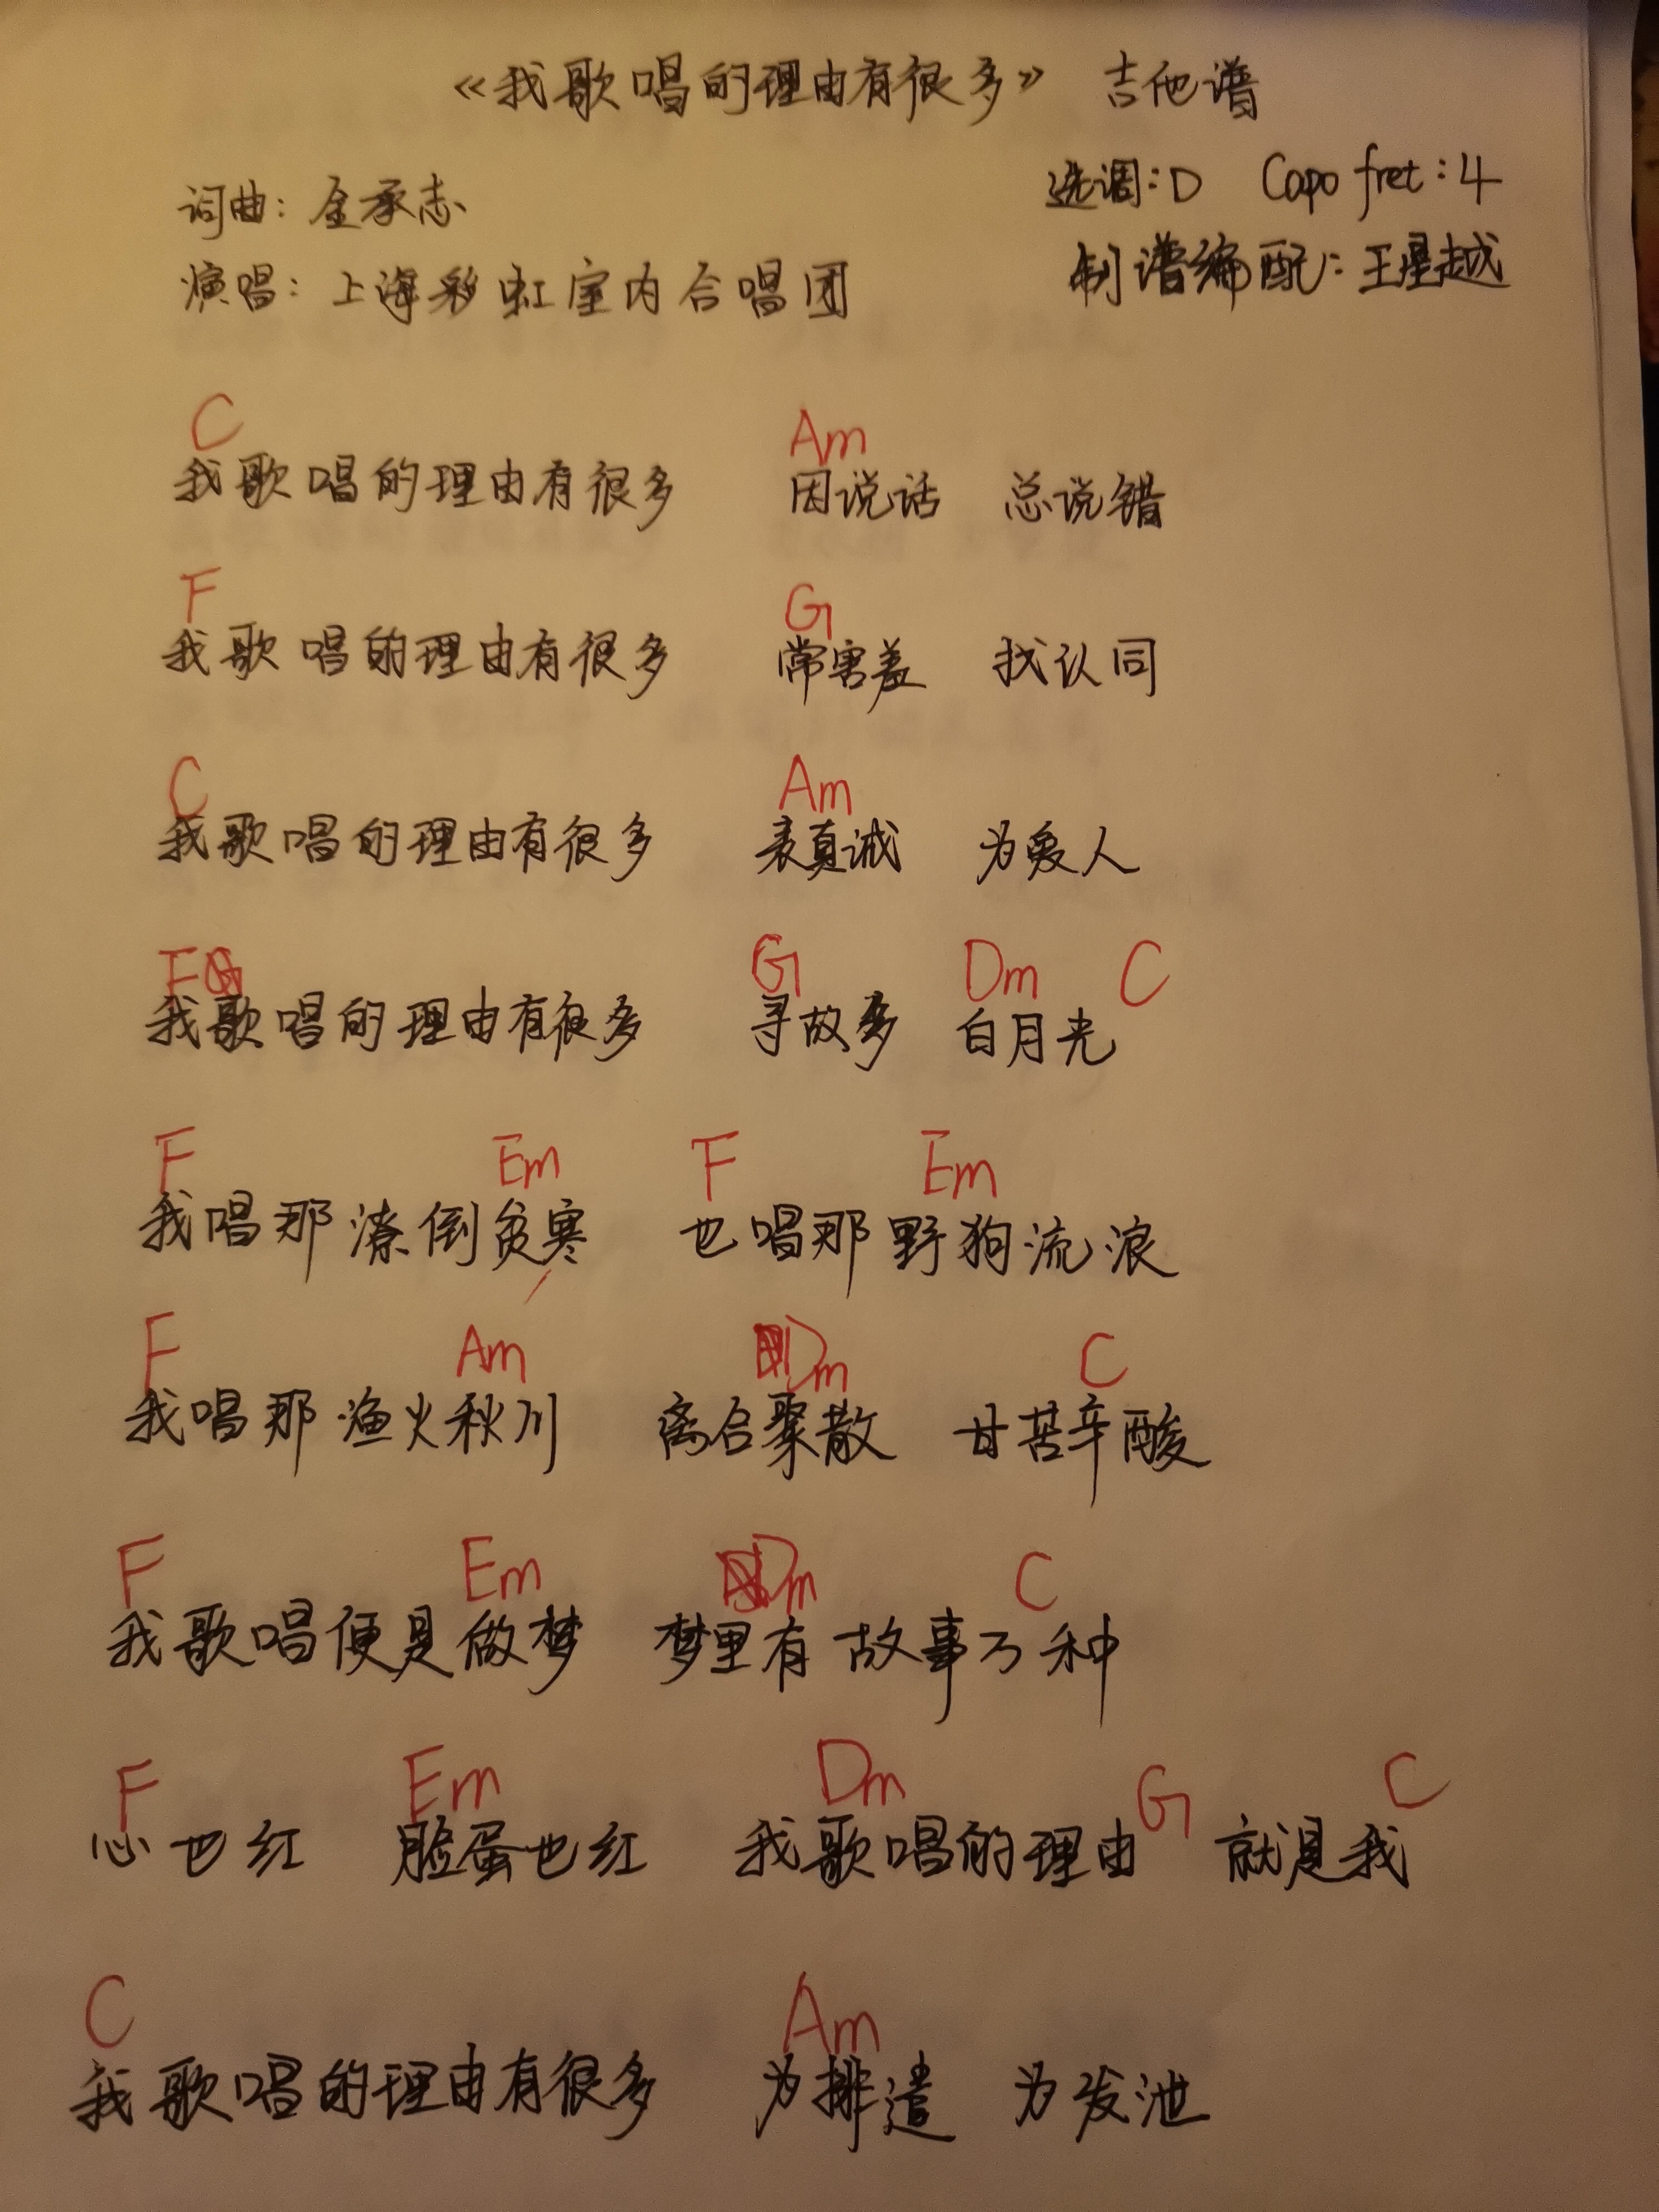 《我歌唱的理由有很多》 吉他谱
词曲：金承志 选调：D Capo fret：4
演唱：上海彩虹室内合唱团 制谱编配：王星越
C Am
我歌唱的理由有很多 因说话 总说错
F G
我歌唱的理由有很多 常害羞 找认同
C Am
我歌唱的理由有很多 表真诚 为爱人
F G Dm C
我歌唱的理由有很多 寻故乡 白月光
F Em F Em
我唱那潦倒贫寒 也唱那野狗流浪
F Am Dm C
我唱那渔火秋川 离合聚散 甘苦辛酸
F Em Dm C
我歌唱便是做梦 梦里有故事万种
F Em Dm G C
心也红 脸蛋也红 我歌唱的理由 就是我
C Am
我歌唱的理由有很多 为排遣 为发泄